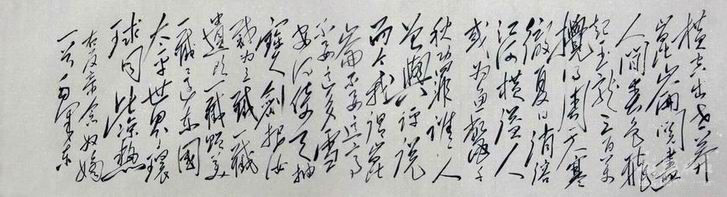 横空出世莽
崑崙阅尽
人间春色飛
起玉龍三百万
攪得周天寒
徹夏日消溶
江河横溢人
或为鱼鳖千
秋功罪谁人
曾與评说
而今我谓崑
崙不要这高
不要这多雪
安得倚天抽
宝剑把汝
裁为三截一截
遗欧一截赠美
一截还东國
太平世界環
球同此凉熱
右反帝念奴嬌
一首毛泽东